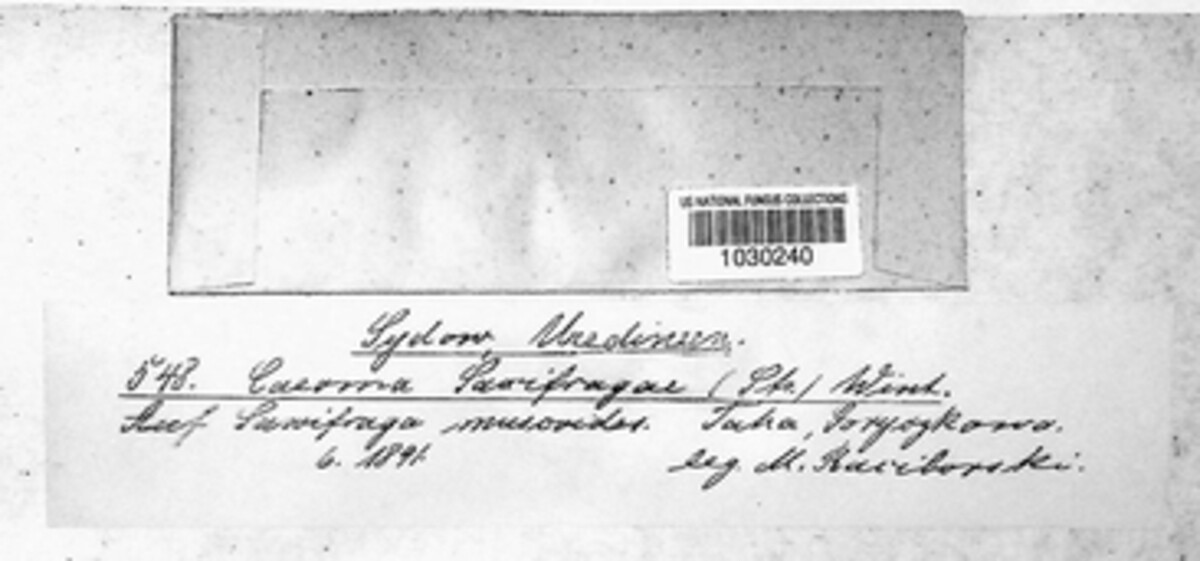 US NATIONAL FUNGUS COLLECTIONS
1030240
Sydow, Uredineen.
548. Caeoma Saxifragae (Str.) Wint.
Auf Saxifraga muscoides. Tatra,
6. 1891 leg. M. Raciborski.